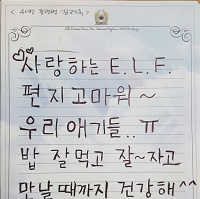 사랑하는 E.L.F.
편지 고마워~
우리 애기들..ㅠ
밥 잘먹고 잘~자고
만날 때까지 건강해^^